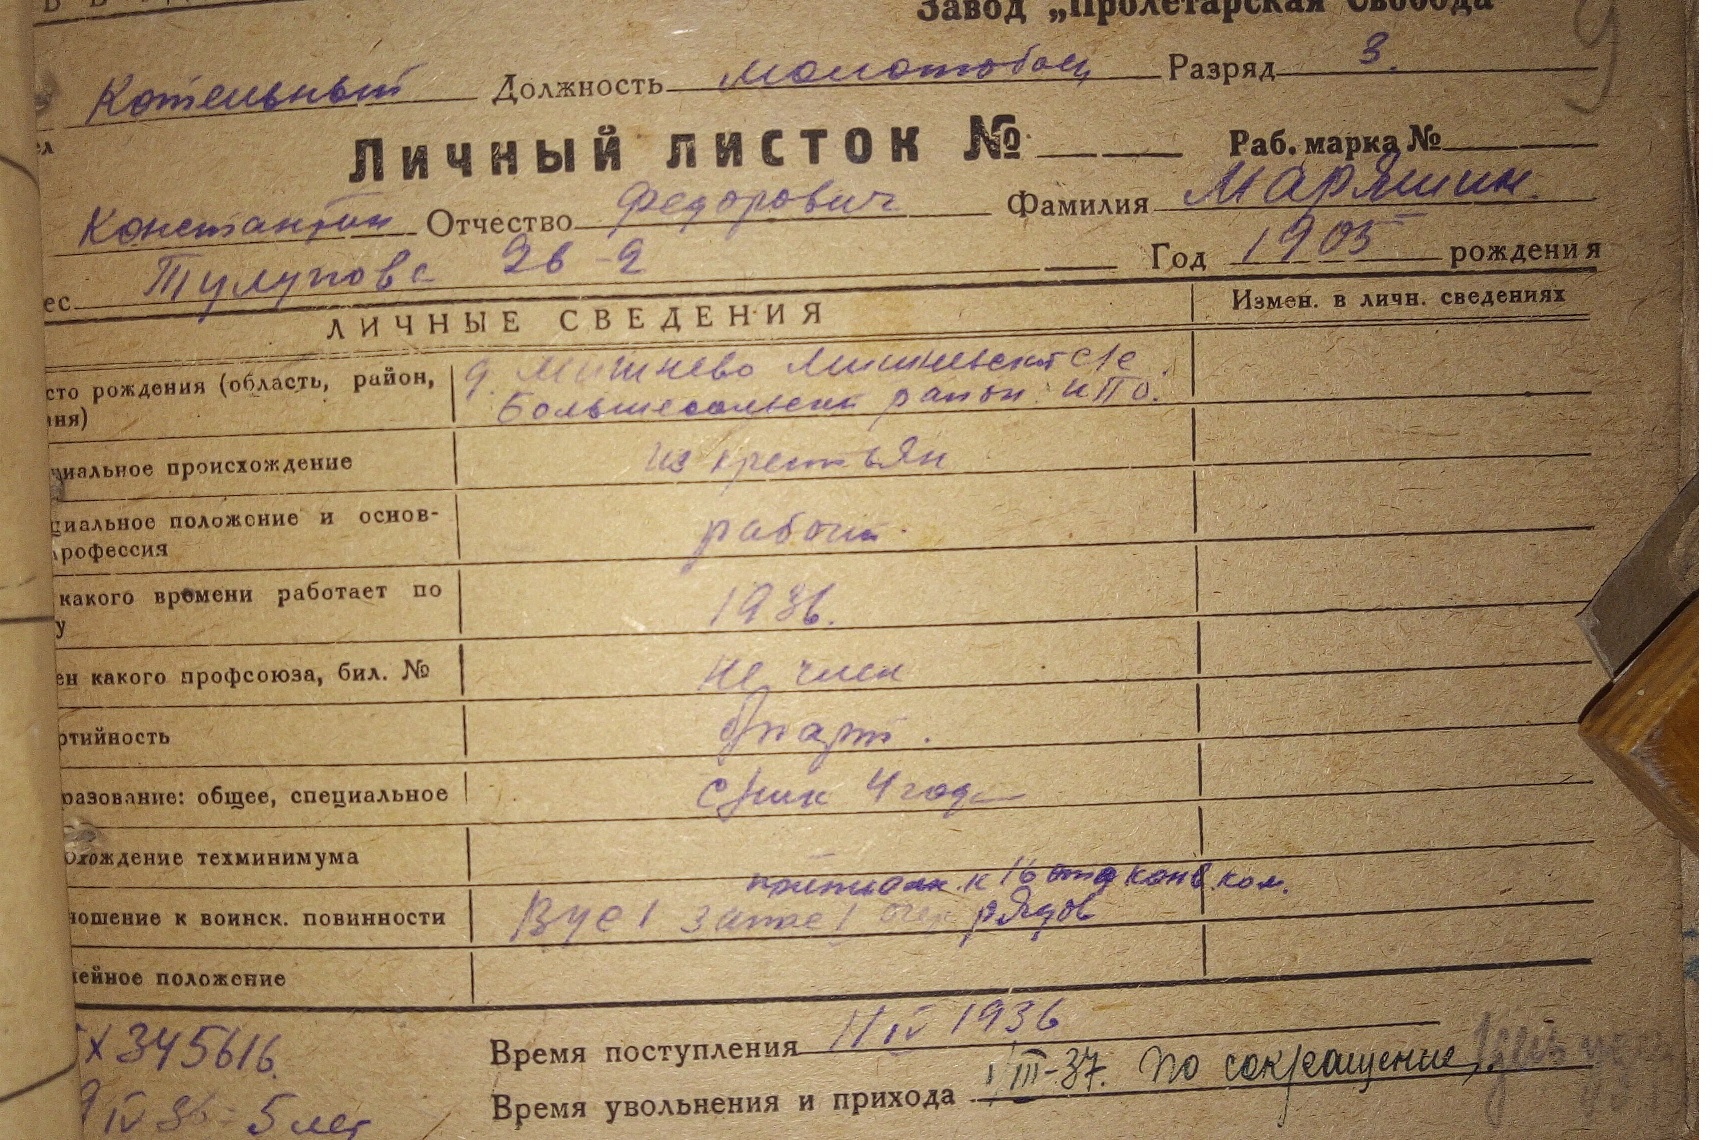 Завод „Пролетарская Свобода"
Котельный Должность молотобоец Разряд 3.
ел
Личный листок № Раб. марка №
Константин Отчество Федорович Фамилия Маряшин.
ес Тулупова 26-2 Год 1905 рождения
ЛИЧНЫЕ СВЕДЕНИЯ Измен. в личн. сведениях
сто рождения (область, район, д. Мишнево Мишневский с/с
ня) Большесольский район ИПО.
циальное происхождение из крестьян
циальное положение и основ- рабочий.
профессия
какого времени работает по 1936.
у
ен какого профсоюза, бил. № не член
ртийность б/парт.
разование: общее, специальное 4 года
охождение техминимума
к 16 отд конв. ком.
ношение к воинск. повинности рядов
ейное положение
х 345616. Время поступления 11 IV 1936
9 IV 36 - 5 лет Время увольнения и прихода 1/III-37. По сокращению.